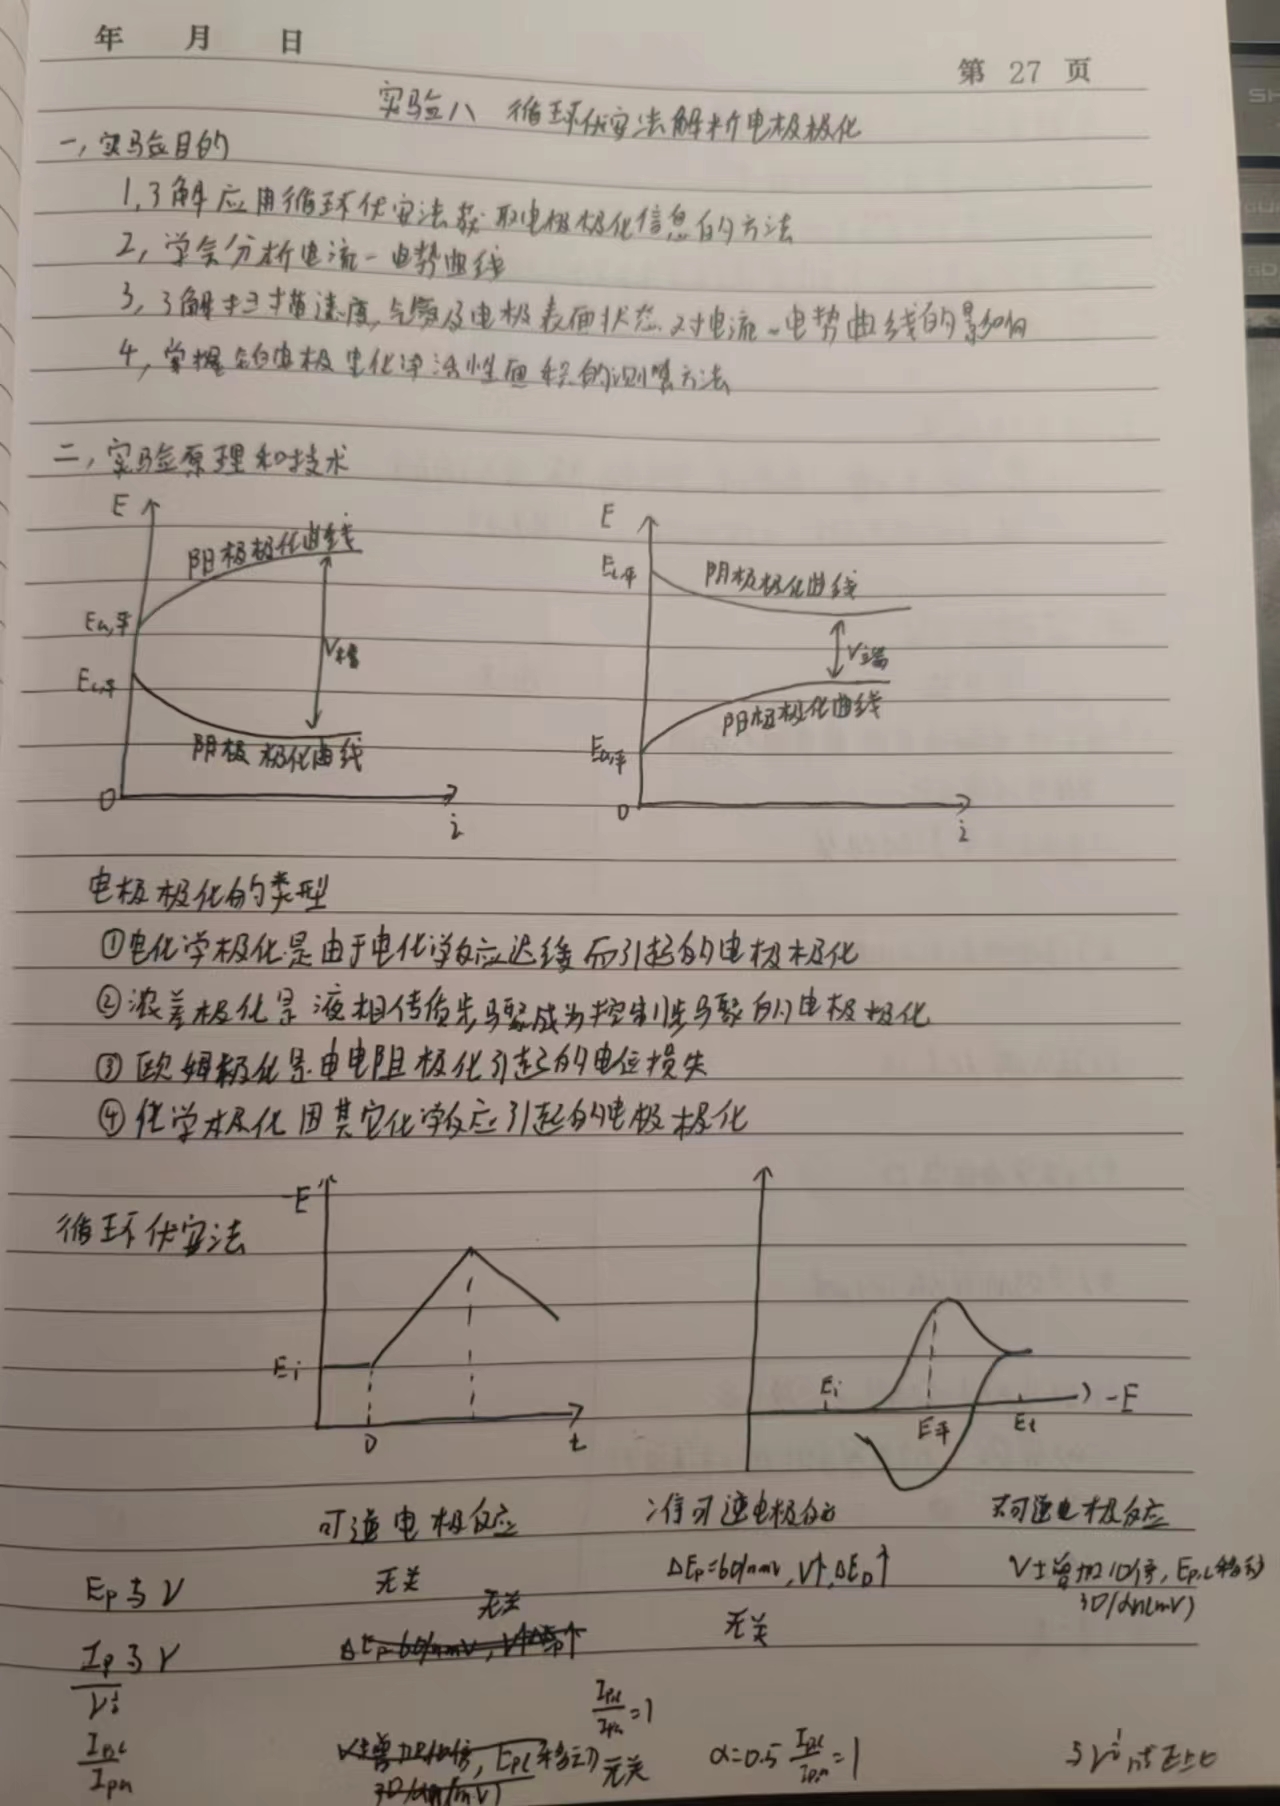 年 月 日
第 27 页
实验八 循环伏安法解析电极极化
一,实验目的
1,了解应用循环伏安法获取电极极化信息的方法
2,学会分析电流-电势曲线
3,了解扫描速度,气氛及电极表面状态对电流-电势曲线的影响
4,掌握铂电极电化学活性面积的测算方法
二,实验原理和技术
E
阳极极化曲线
Ea,平
V槽
Ec,平
阴极极化曲线
0
i
E
Ec,平
阴极极化曲线
V端
阳极极化曲线
Ea,平
0
i
电极极化的类型
①电化学极化是由于电化学反应迟缓而引起的电极极化
②浓差极化是液相传质步骤成为控制步骤的电极极化
③欧姆极化是由电阻极化引起的电位损失
④化学极化因其它化学反应引起的电极极化
循环伏安法
-E
Ei
0
t
Ei
E平
-E
可逆电极反应 准可逆电极反应 不可逆电极反应
Ep与V 无关 ΔEp=60/n mv,V↑,ΔEp↑ V增加10倍,Ep,c移动
30/αn(mV)
Ip/V½与V 无关 无关
Ipc/Ipa Ipc/Ipa=1 无关 α=0.5 Ipc/Ipa=1